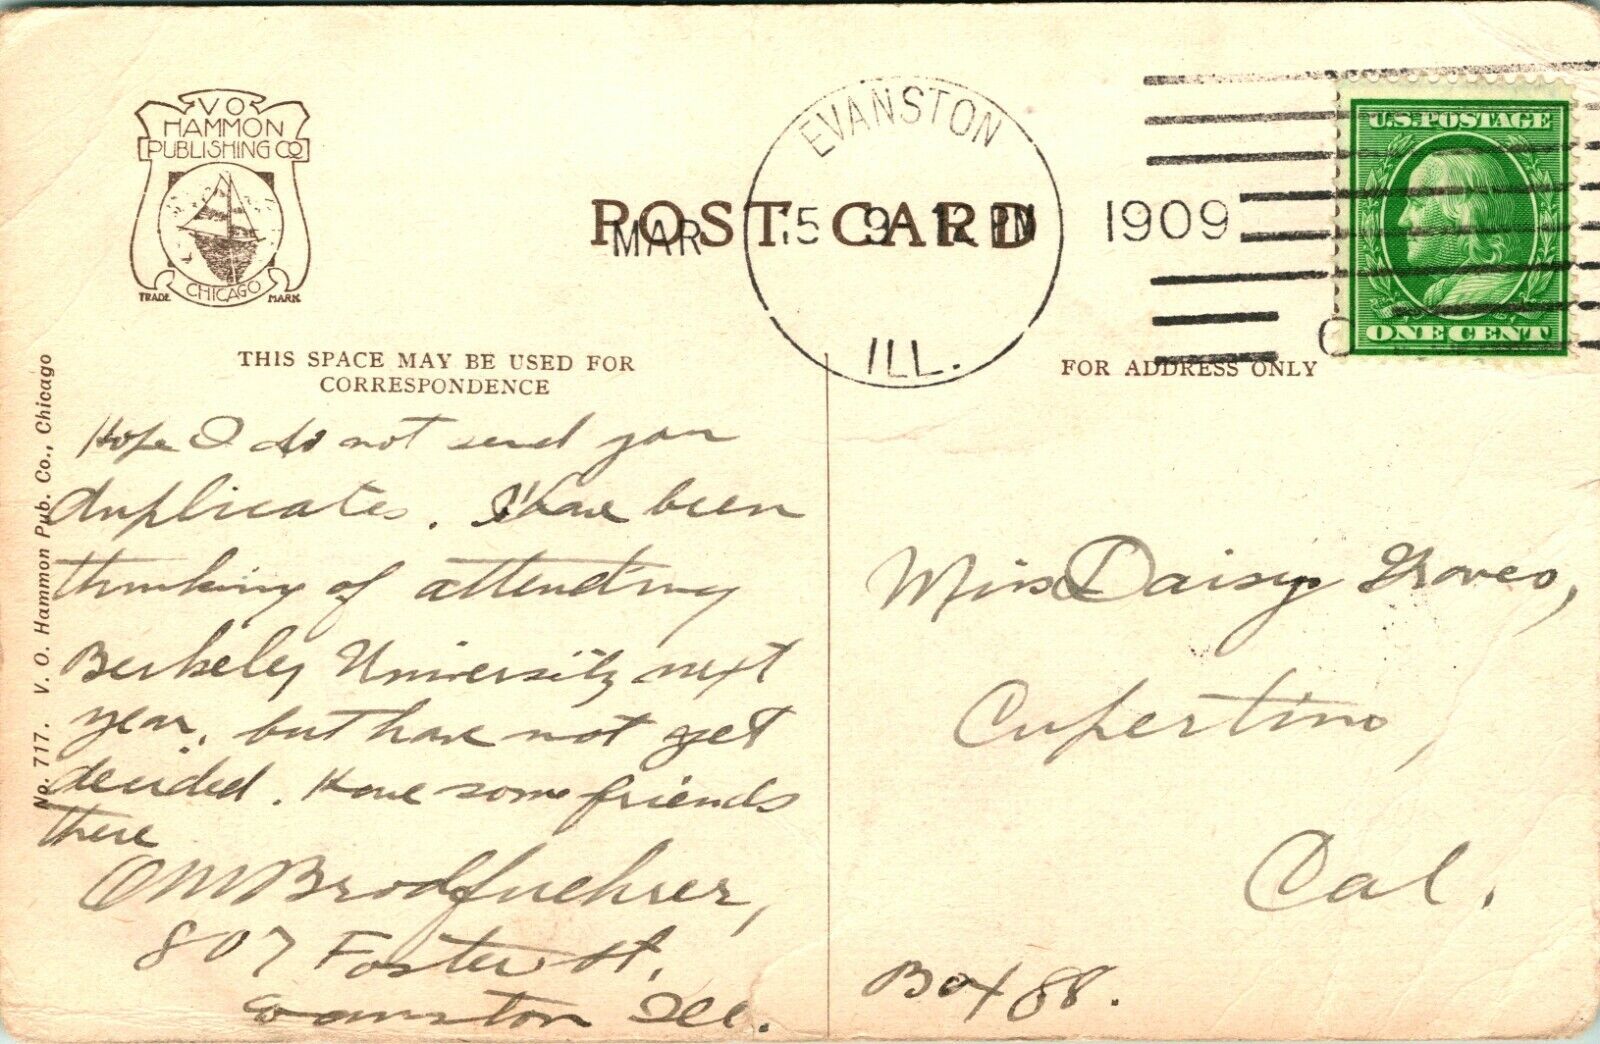 V O
HAMMON
PUBLISHING CO
CHICAGO
TRADE MARK
POST CARD
EVANSTON
MAR 15 9 12 PM
ILL.
1909
U.S. POSTAGE
ONE CENT
THIS SPACE MAY BE USED FOR
CORRESPONDENCE
FOR ADDRESS ONLY
No. 717. V. O. Hammon Pub. Co., Chicago
Hope I do not send you
duplicates. I have been
thinking of attending
Berkeley University next
year, but have not yet
decided. Have some friends
there
O M Brodfuehrer,
807 Foster St.
Evanston Ill.
Miss Daisy Groves,
Cupertino,
Cal.
Box 88.